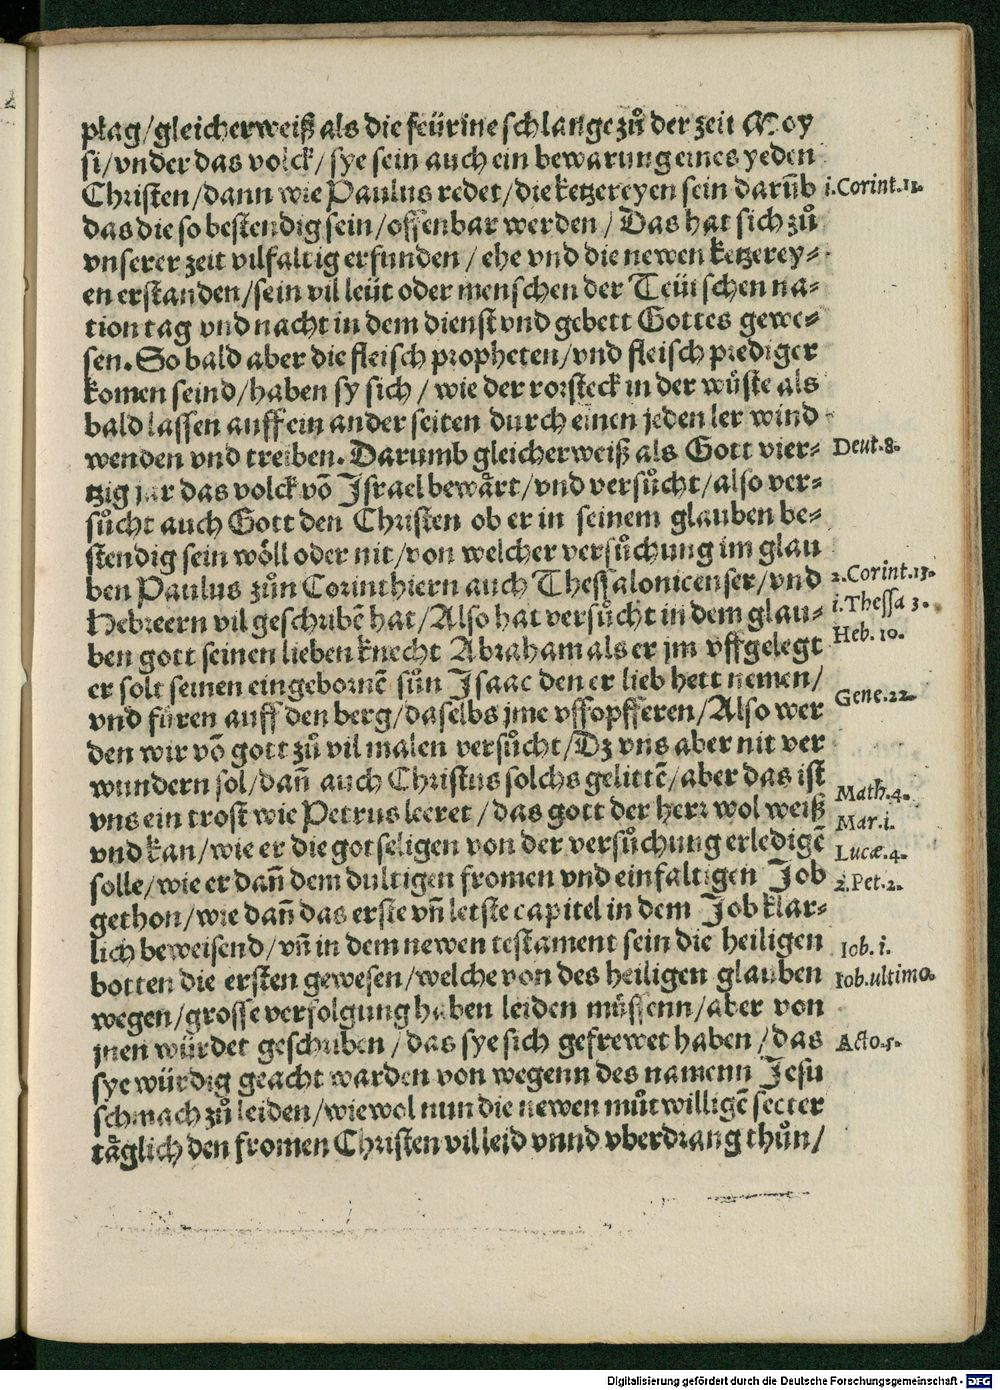 plag/gleicherweiß als die feürine schlange zů der zeit Moy
si/vnder das volck/sye sein auch ein bewarung eines yeden
Christen/dann wie Paulus redet/die ketzereyen sein darũb i.Corint.11.
das die so bestendig sein/offenbar werden/Das hat sich zů
vnserer zeit vilfaltig erfunden/ehe vnd die newen ketzerey⸗
en erstanden/sein vil leüt oder menschen der Teütschen na⸗
tion tag vnd nacht in dem dienst vnd gebett Gottes gewe⸗
sen. So bald aber die fleisch propheten/vnd fleisch prediger
komen seind/haben sy sich/wie der rorsteck in der wůste als
bald lassen auff ein ander seiten durch einen jeden ler wind
wenden vnd treiben. Darumb gleicherweiß als Gott vier⸗ Deut.8.
tzig jar das volck võ Israel bewårt/vnd versůcht/also ver⸗
sůcht auch Gott den Christen ob er in seinem glauben be⸗
stendig sein wöll oder nit/von welcher versůchung im glau
ben Paulus zůn Corinthiern auch Thessalonicenser/vnd 2.Corint.13.
Hebreern vil geschribẽ hat/Also hat versůcht in dem glau⸗ i.Thessa 3.
ben gott seinen lieben knecht Abraham als er jm vffgelegt Heb.10.
er solt seinen eingebornẽ sůn Isaac den er lieb hett nemen/
vnd füren auff den berg/daselbs jme vffopfferen/Also wer Gene.22.
den wir võ gott zů vil malen versůcht/Dz vns aber nit ver
wundern sol/dañ auch Christus solchs gelittẽ/aber das ist
vns ein trost wie Petrus leeret/das gott der herr wol weiß Math.4.
vnd kan/wie er die gotseligen von der versůchung erledigẽ Mar.i. Lucæ.4.
solle/wie er dañ dem dultigen fromen vnd einfaltigen Job 2.Pet.2.
gethon/wie dañ das erste vñ letste capitel in dem Job klar⸗
lich beweisend/vñ in dem newen testament sein die heiligen Iob.i.
botten die ersten gewesen/welche von des heiligen glauben Iob.ultimo.
wegen/grosse verfolgung haben leiden müssenn/aber von
jnen würdet geschriben/das sye sich gefrewet haben/das Acto.5.
sye würdig geacht warden von wegenn des namenn Jesu
schmach zů leiden/wiewol nun die newen můtwilligẽ secter
täglich den fromen Christen vil leid vnnd vberdrang thůn/
Digitalisierung gefördert durch die Deutsche Forschungsgemeinschaft - DFG